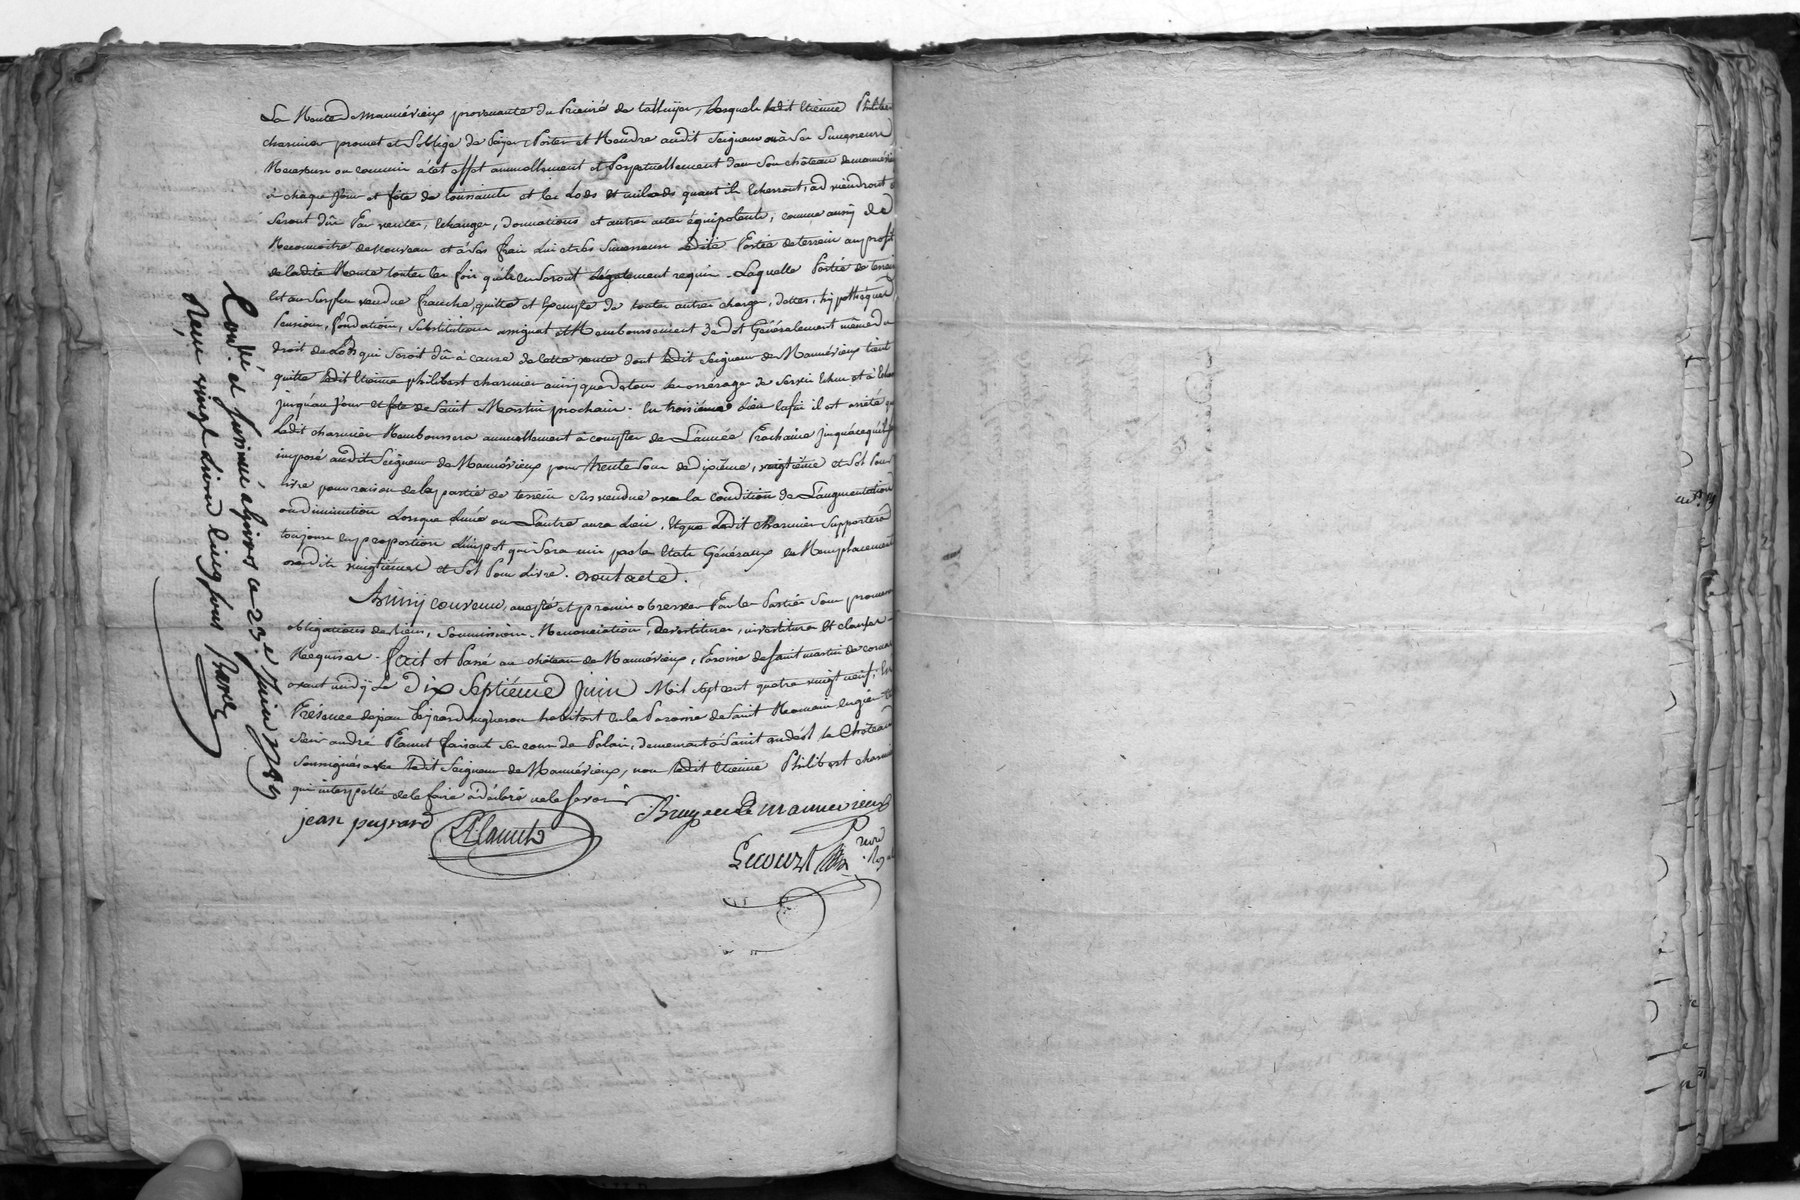 La Rente de Mannévieux provenante du Prieuré de talluyer, Lesquels ledit Etienne Philiber
charmier promet et S'oblige de Payer Porter et Rendre audit Seigneur ou à Ses Successeurs
Receveurs ou commis à cet effet annuellement et Perpetuellement dans Son château de mannévie
à chaque Jour et fête de toussaints et les Lods et milods quant ils Echerront, ad viendront
Seront dûs Par ventes, Echanges, donnations et autres actes équipolents, comme aussy de
Reconnoitre de Nouveau et à Ses frais Lui et Ses Successeurs Ladite Partie de terrein au profit
de ladite Rente toutes les fois qu'ils en Seront Légalement requis. Laquelle Partie de terrein
Est au Surplus vendue franche, quitte et Exempte de toutes autres charges, dettes, hypothèques
Pensions, fondations, Substitutions assignat et Remboursement de dot Généralement même du
droit de Lods qui Seroit dû à cause de cette vente dont Ledit Seigneur de Mannévieux tient
quitte Ledit Etienne philibert charmier ainsy que de tous les arrérages de Servis Echus et à Echoir
Jusqu'au Jour et fête de Saint Martin prochain. En troisième Lieu Enfin il est arrêté que
Ledit charmier Remboursera annuellement à compter de L'année Prochaine Jusqu'à ce qu'il Soit
imposé audit Seigneur de Mannévieux pour trente Sous de dixième, vingtième et Sol Pour
Livre pour raison de la partie de terrein Sus vendue avec la condition de L'augmentation
ou diminution Lorsque L'une ou L'autre aura Lieu, Et que Ledit charmier Supportera
toujours En proportion L'impot qui Sera mis par les Etats Généraux En Remplacement
desdits vingtièmes et Sol Pour Livre. dont acte.
Ainsy convenu, accepté et promis observer Par les Parties Sous promesses
obligations de biens, Soumissions, Renonciations, devestitures, investitures Et clauses
Requises. fait et Passé au château de Mannévieux, Paroisse de Saint martin de cornas
avant midy Le Dix Septième Juin Mil Sept cent quatre vingt neuf, En
Présence de jean Peyrard vigneron habitant En la Paroisse de Saint Romain en giers Et
Sieur andré Flamet faisant Son cours de Palais, demeurant à Saint andéol Le Château
Soussignés avec Ledit Seigneur de Mannévieux, non Ledit Etienne Philibert charmier
qui interpellé de le faire a déclaré ne le Savoir
jean peyrard
Bruyere de mannevieux
Lecourt
Conlé. et Insinué à Givors ce 23e Juin 1789
Reçu vingt deux Livres cinq Sous